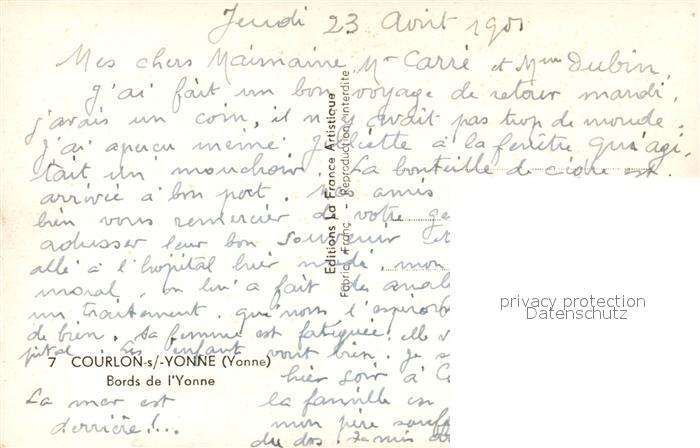 Jeudi 23 Avril 1901
Mes chers Maimaine, Mr Carré et Mme Dubin,
J'ai fait un bon voyage de retour mardi,
j'avais un coin, il n'y avait pas trop de monde.
J'ai aperçu même Juliette à la fenêtre qui agi-
tait un mouchoir. La bouteille de cidre est
arrivée à bon port. Nos amis
bien vous remercier de votre ge
adresser leur bon souvenir et
allé à l'hôpital hier midi, mon
moral, on lui a fait des anal
un traitement, que nous l'espérons
de bien. Sa femme est fatiguée, elle v
pital. Les enfants vont bien. Je s
hier soir à C
la famille en
mon père souff
du dos. Je mis
La mer est
derrière !...
Editions La France Artistique
Fabric. Franç. - Reproduction interdite
7 COURLON-s/-YONNE (Yonne)
Bords de l'Yonne
privacy protection
Datenschutz